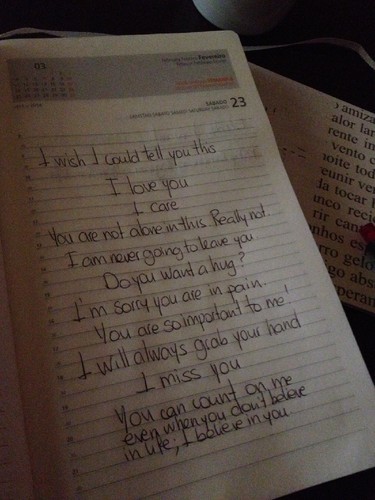 03
Fevereiro
SÁBADO 23
I wish I could tell you this
I love you
I care
You are not alone in this. Really not.
I am never going to leave you
Do you want a hug?
I'm sorry you are in pain.
You are so important to me!
I will always grab your hand
I miss you
You can count on me
even when you don't believe
in life; I believe in you
amiza
alor lar
rente in
vento c
oite tod
eunir ve
da tocar
nco reci
rir can
nhos es
rro gelo
go abs
peran